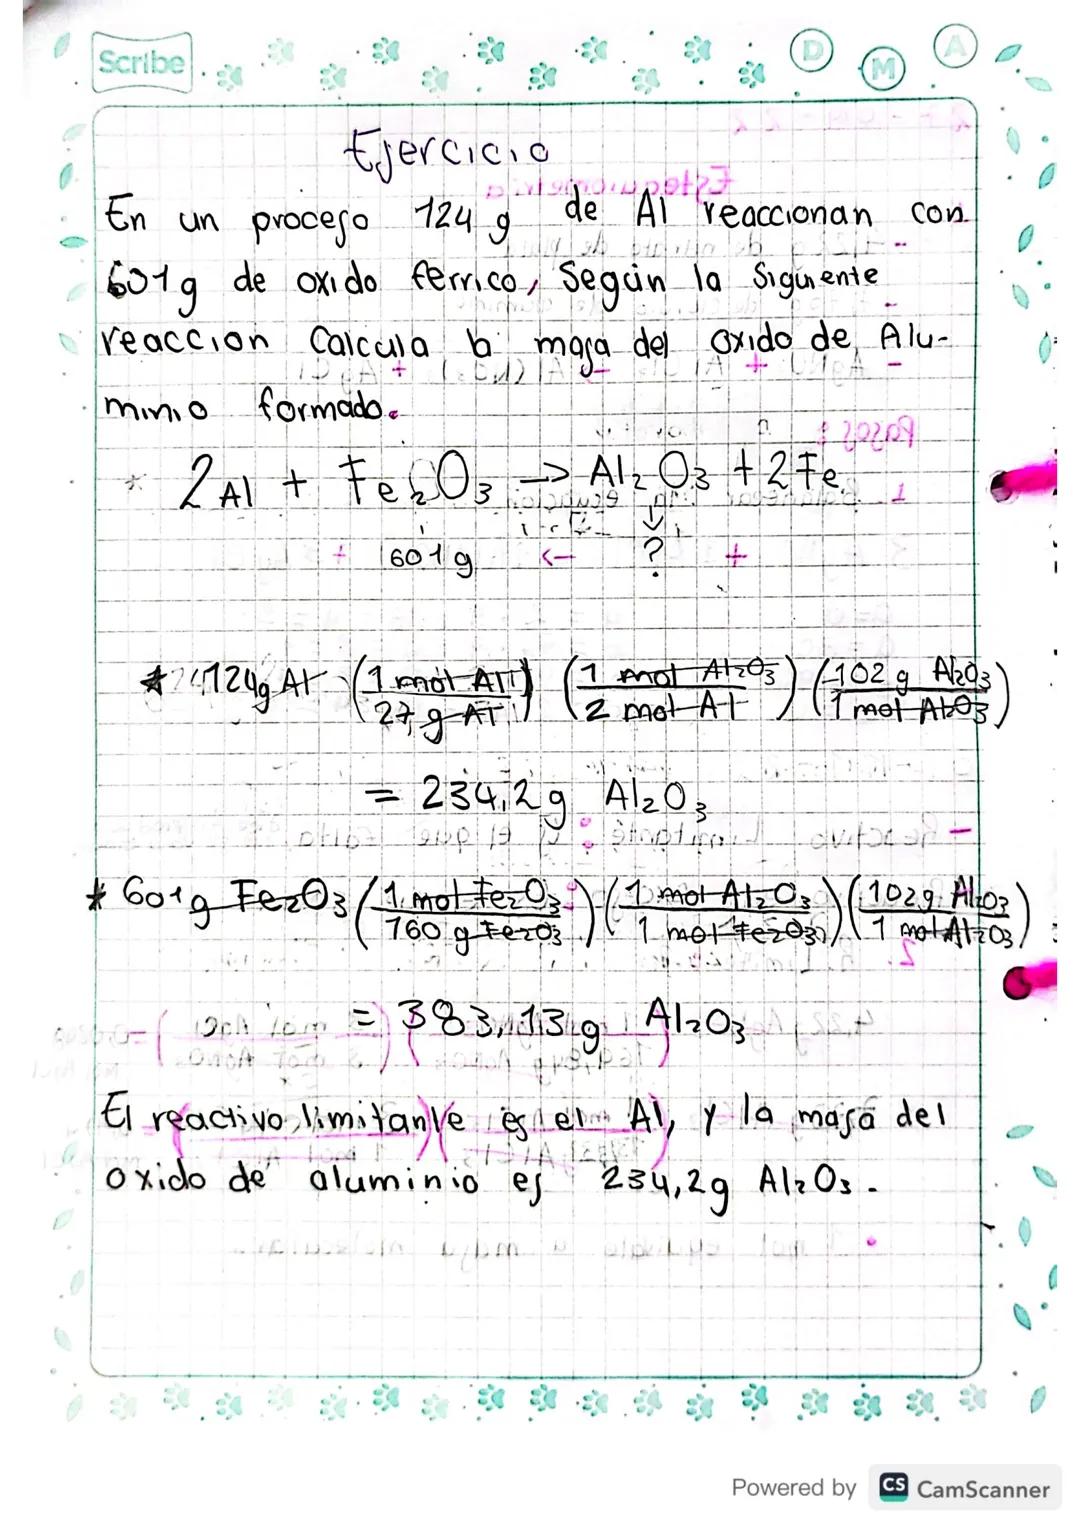 Scribe
D M A
Ejercicio
En un proceso 124 g de Al reaccionan con
601g de oxido ferrico, Según la Siguiente
reaccion Calcula la masa del oxido de Alu-
minio formado.
* 2Al + Fe2O3 -> Al2O3 + 2Fe
601g ?
* 124g Al (1 mol Al / 27 g Al) (1 mol Al2O3 / 2 mol Al) (102 g Al2O3 / 1 mol Al2O3)
= 234,2g Al2O3
* 601g Fe2O3 (1 mol Fe2O3 / 160 g Fe2O3) (1 mol Al2O3 / 1 mol Fe2O3) (102g Al2O3 / 1 mol Al2O3)
= 383,13g Al2O3
El reactivo limitante es el Al, y la masa del
oxido de aluminio es 234,2g Al2O3.
Powered by CS CamScanner